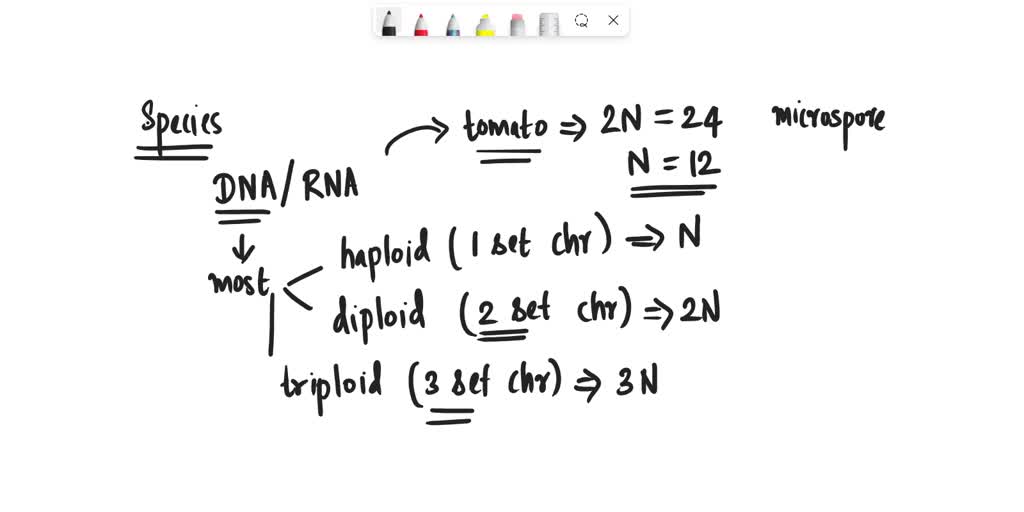 Species
tomato ⇒ 2N = 24
microspore
N = 12
DNA/RNA
most
haploid (1 set chr) ⇒ N
diploid (2 set chr) ⇒ 2N
triploid (3 set chr) ⇒ 3N